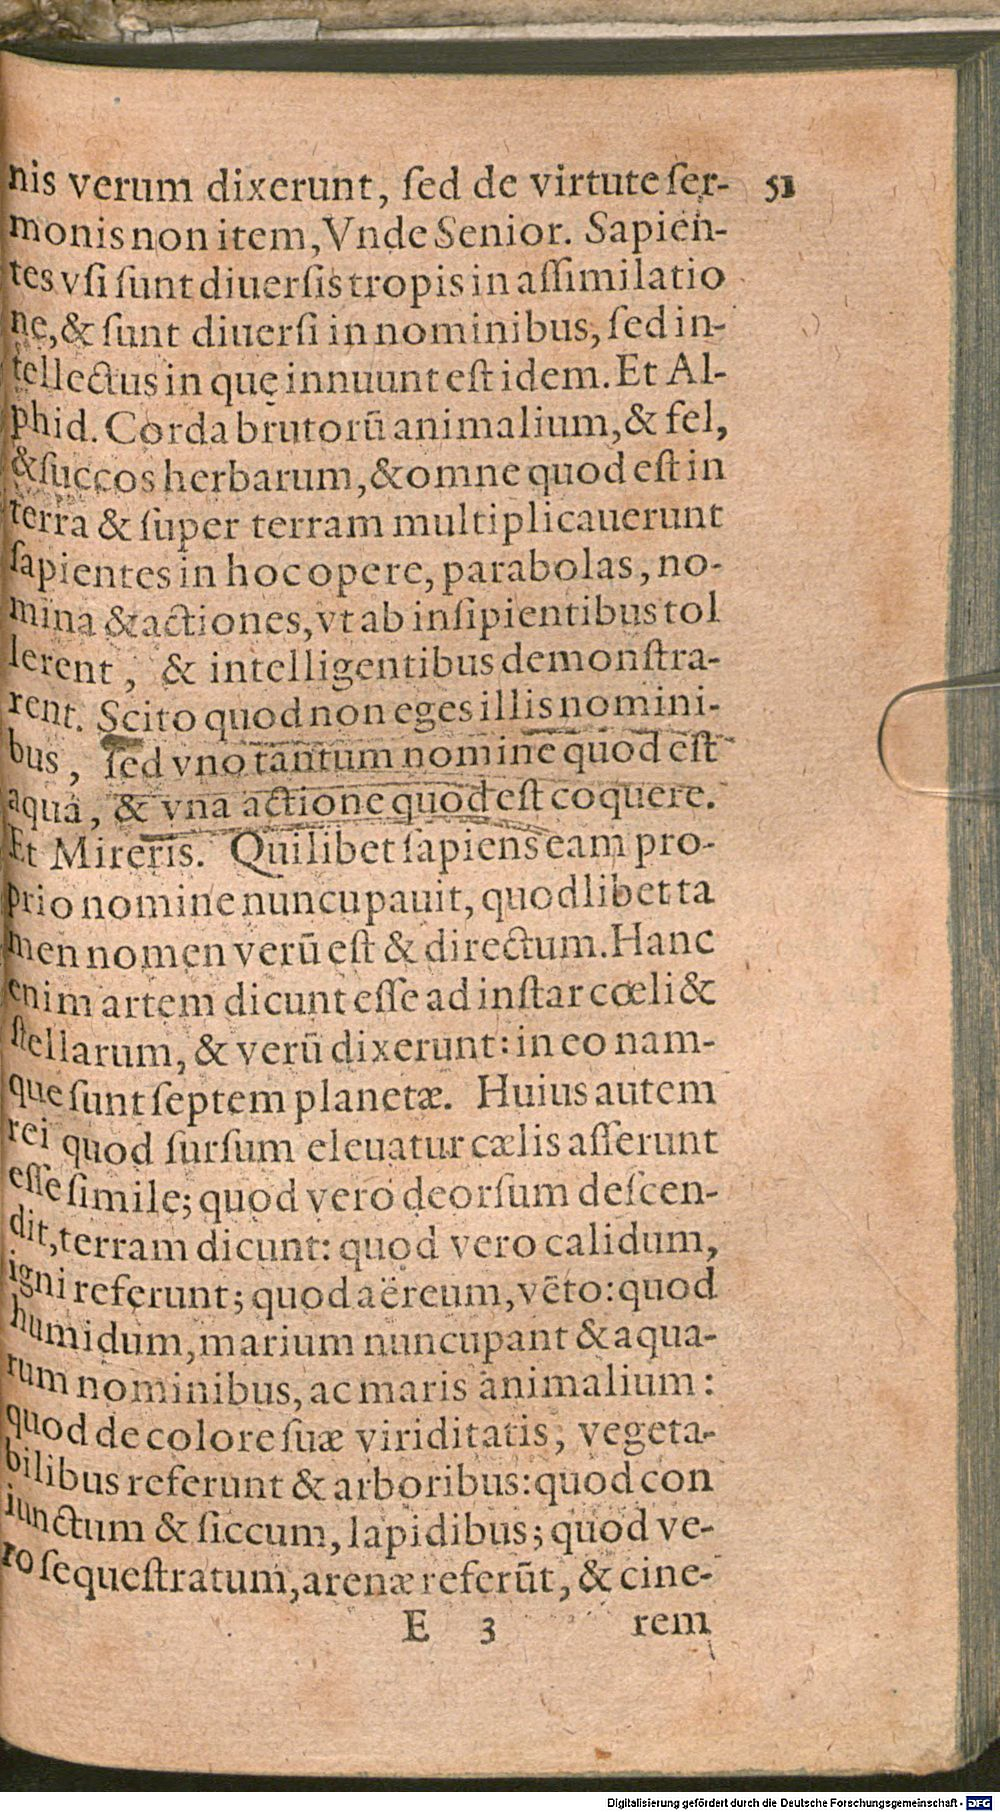 nis verum dixerunt, ſed de virtute ſer- 51
monis non item, Vnde Senior. Sapien-
tes vſi ſunt diuerſis tropis in aſſimilatio
ne, & ſunt diuerſi in nominibus, ſed in-
tellectus in quę innuunt eſt idem. Et Al-
phid. Corda brutorū animalium, & fel,
& ſuccos herbarum, & omne quod eſt in
terra & ſuper terram multiplicauerunt
ſapientes in hoc opere, parabolas, no-
mina & actiones, vt ab inſipientibus tol
lerent, & intelligentibus demonſtra-
rent. Scito quod non eges illis nomini-
bus, ſed vno tantum nomine quod eſt
aqua, & vna actione quod eſt coquere.
Et Mireris. Quilibet ſapiens eam pro-
prio nomine nuncupauit, quodlibet ta
men nomen verū eſt & directum. Hanc
enim artem dicunt eſſe ad inſtar cœli &
ſtellarum, & verū dixerunt: in eo nam-
que ſunt ſeptem planetæ. Huius autem
rei quod ſurſum eleuatur cælis aſſerunt
eſſe ſimile; quod vero deorſum deſcen-
dit, terram dicunt: quod vero calidum,
igni referunt; quod aëreum, vēto: quod
humidum, marium nuncupant & aqua-
rum nominibus, ac maris animalium:
quod de colore ſuæ viriditatis, vegeta-
bilibus referunt & arboribus: quod con
iunctum & ſiccum, lapidibus; quod ve-
ro ſequeſtratum, arenæ referūt, & cine-
E 3 rem
Digitalisierung gefördert durch die Deutsche Forschungsgemeinschaft - DFG